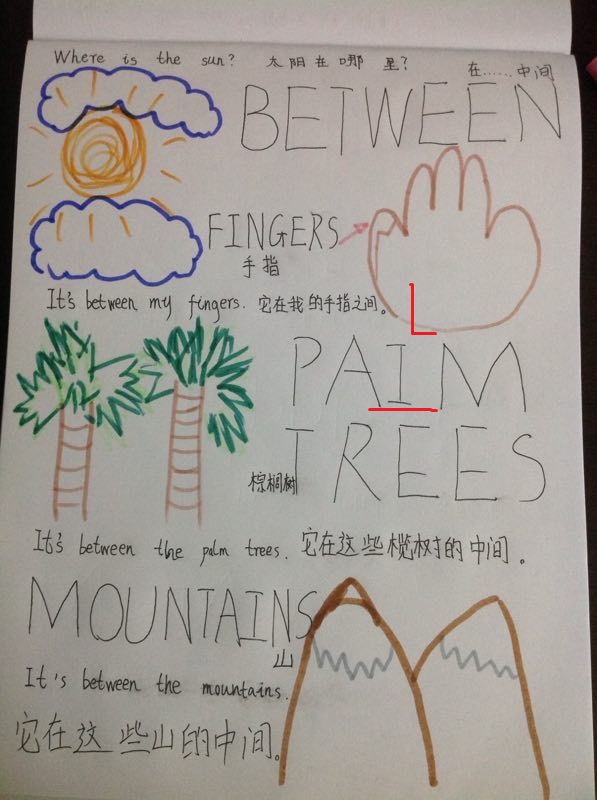 Where is the sun? 太阳在哪里?
在……中间
BETWEEN
FINGERS
手指
It's between my fingers. 它在我的手指之间。
L
PAIM
TREES
棕榈树
It's between the palm trees. 它在这些榄树的中间。
MOUNTAINS
山
It's between the mountains.
它在这些山的中间。